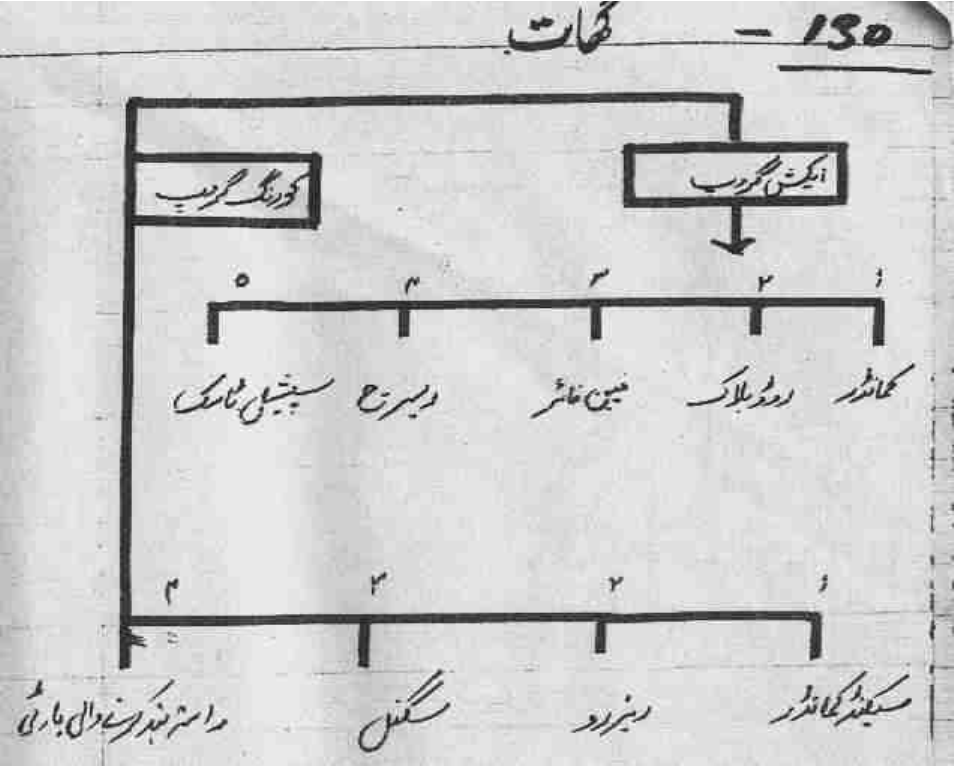 130 - گھات
ایکشن گروپ
کورنگ گروپ
۱ ۲ ۳ ۴ ۵
کمانڈر روڈ بلاک مین فائر ریسرچ سپیشل ٹاسک
۱ ۲ ۳ ۴
سیکنڈ کمانڈر ریزرو سگنل راستہ بند کرنے والی پارٹی